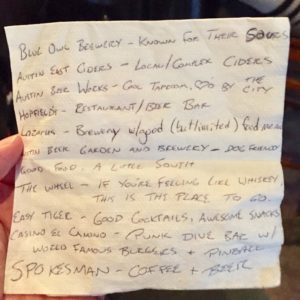 Blue Owl Brewery - Known For Their Sours
Austin East Ciders - Local/Complex Ciders
Austin Beer Works - Cool Taproom, ♡'s by the City
Hopfields - Restaurant/Beer Bar
Lazarus - Brewery w/good (but limited) food menu
Beer Garden and Brewery - Dog Friendly
Good Food, A Little South
The Whisel - If You're Feeling Like Whiskey,
This is the place to go.
Easy Tiger - Good Cocktails, Awesome Snacks
Casino El Camino - Punk Dive Bar w/
World Famous Burgers + Pinball
Spokesman - Coffee + Beer